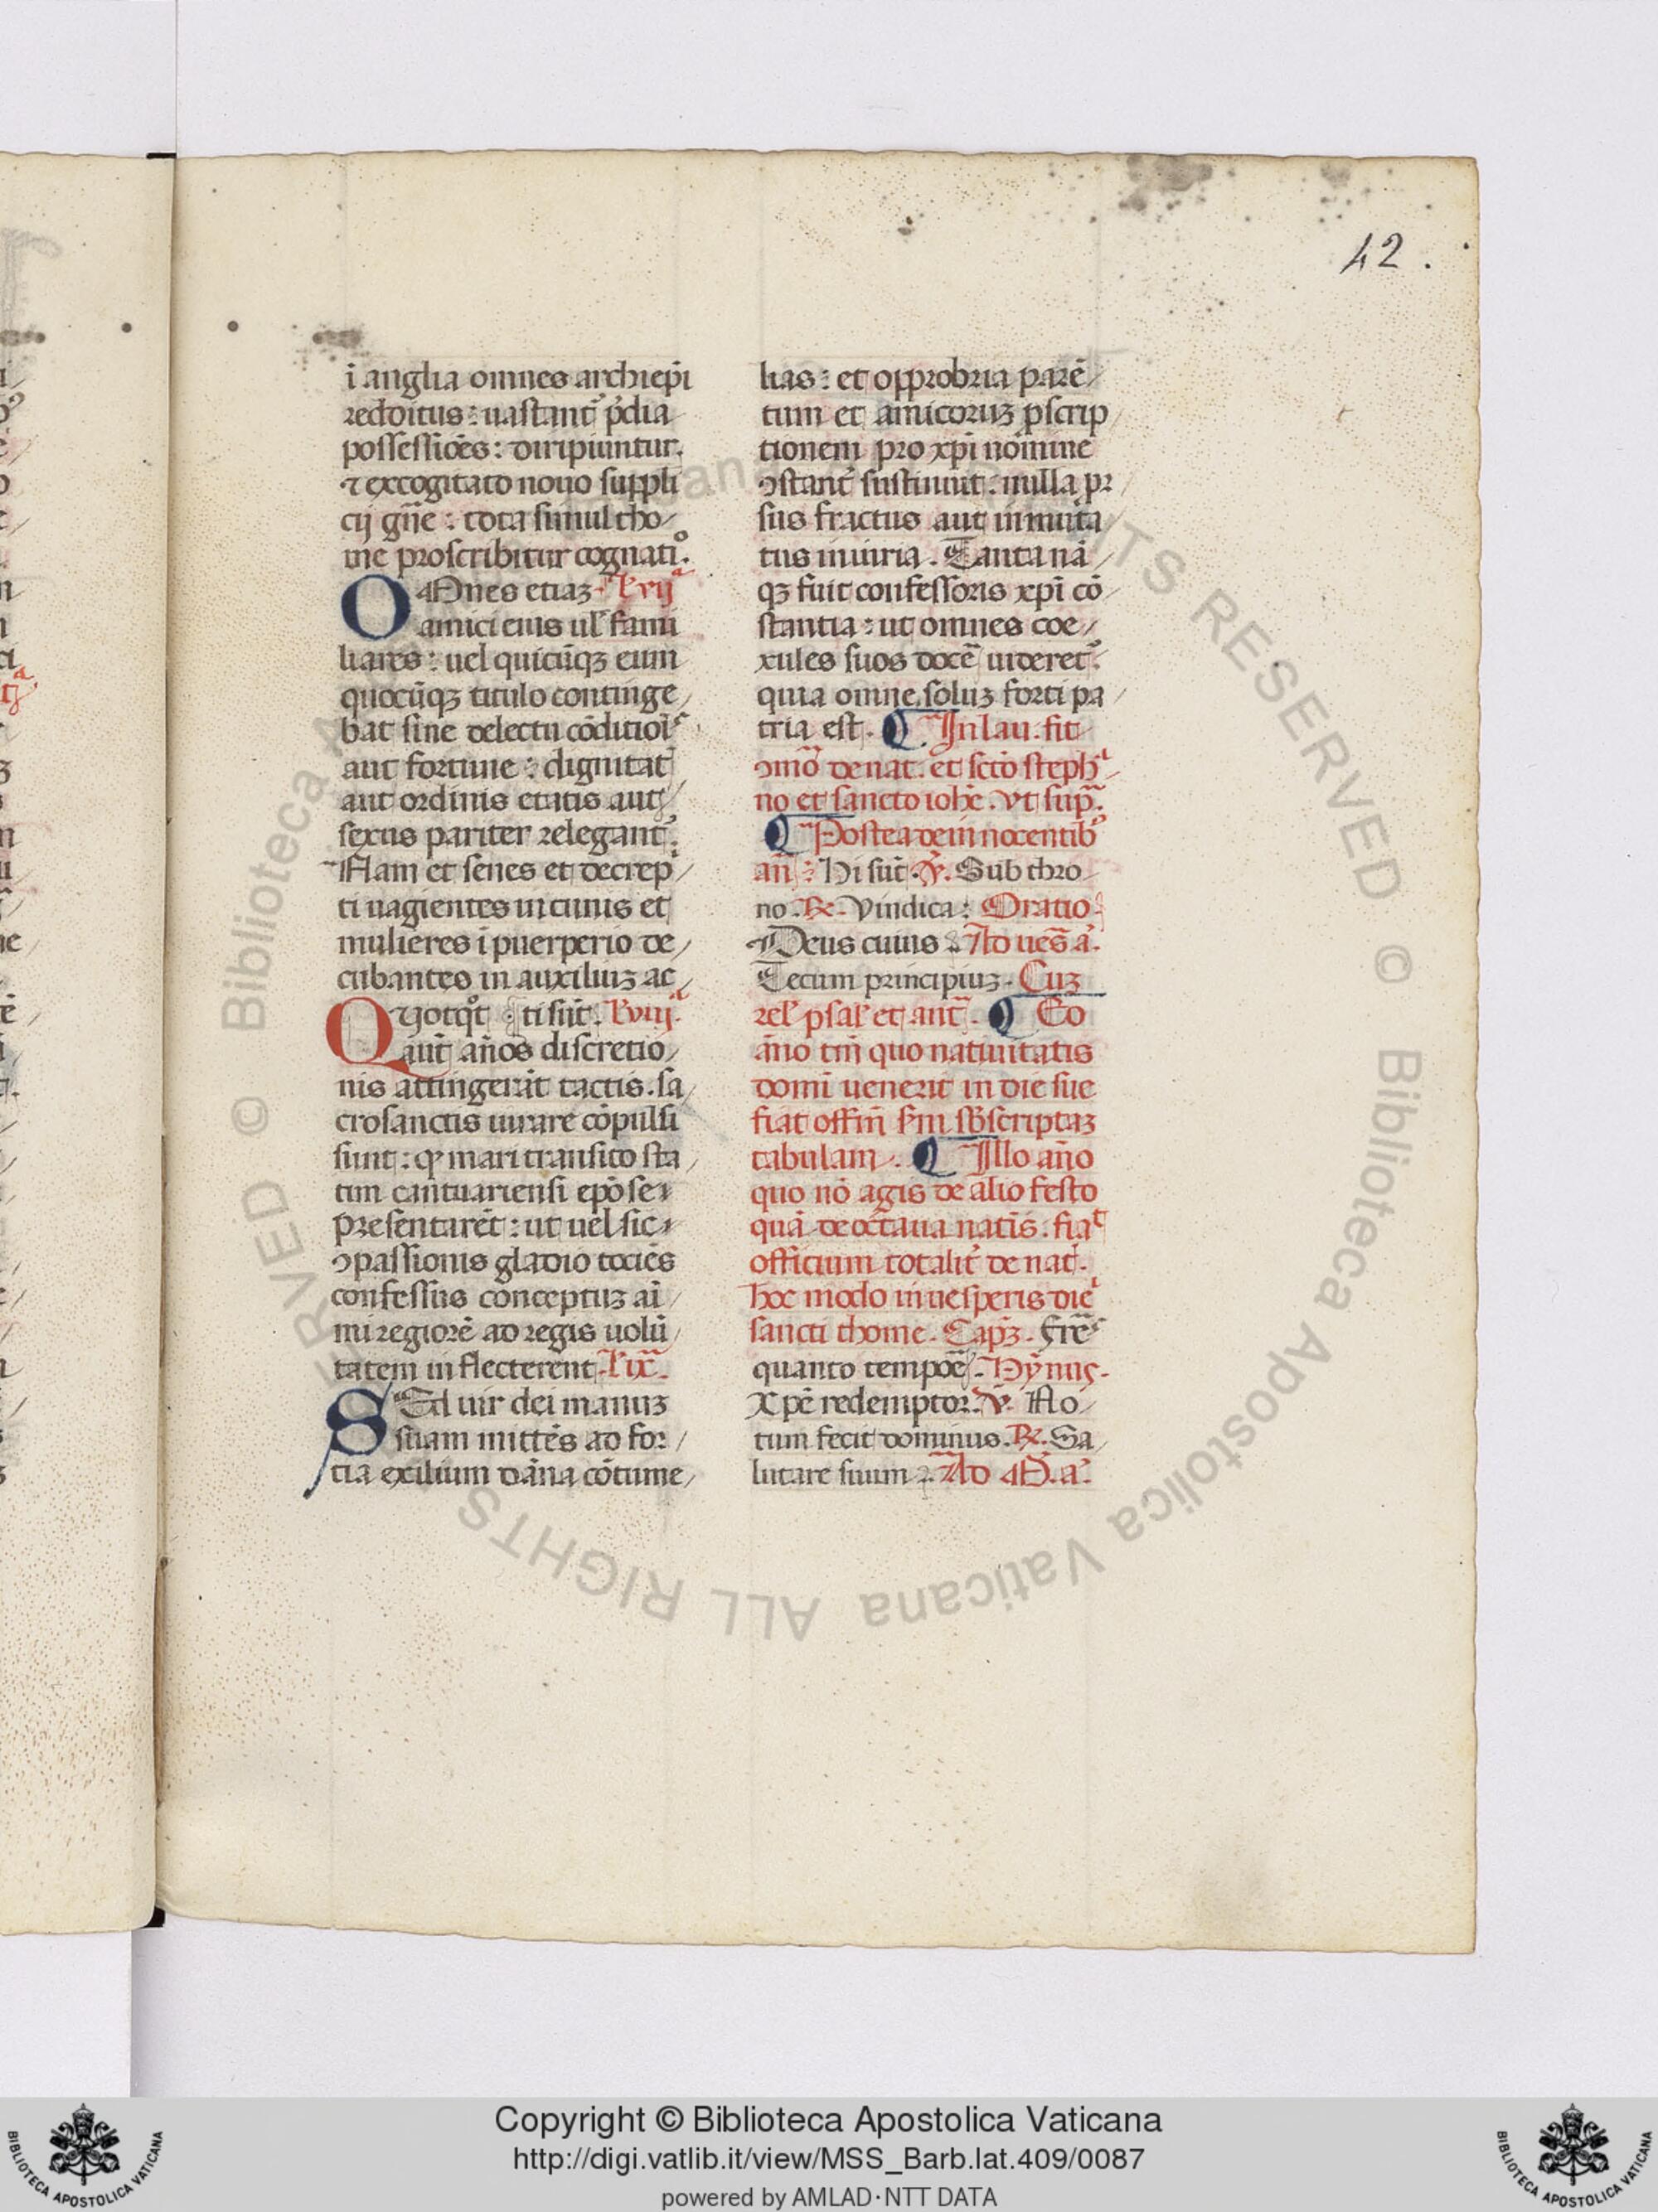 42.
ī anglia omnes archiep̄i
redditus: uastant᷑ p̄dia
possessiōes: diripiuntur.
⁊ excogitato nouo suppli
cij gn̄e: tota simul tho/
me proscribitur cognatiº.
OMnes etiaꝫ. L'vijᵃ
amici eius ul' fami
liares: uel quicūqꝫ eum
quocūqꝫ titulo continge/
bat sine delectu cōditiōīˢ
aut fortune: dignitat᷑
aut ordinis etatis aut/
sexus pariter relegant᷑:
Nam et senes et decrep/
ti uagientes in cunis et
mulieres ī puerperio de/
cubantes in auxiliuꝫ ac/
QUotqͦt ti sūt. L'viijᵃ.
aūt an̄os discretio/
nis attingerāt tactis. sa/
crosanctis iurare cōpulsi
sunt: ꝙ mari transito sta/
tim cantuariensi ep̄o se
presentarēt: ut uel sic
ꝯpassionis gladio tociēs
confessus conceptuꝫ ai/
mi regiorē ad regis uolū/
tatem in flecterent. L'ixᵃ.
SEd uir dei manuꝫ
suam mittēs ad for/
tia exilium dāna cōtume/
lias: et opprobria parē/
tum et amicoruꝫ ꝓscrip/
tionem pro xp̄i nomine
ꝯstant᷑ sustinuit: nulla pr/
sus fractus aut inmuta
tus iniuria. Tanta nā/
qꝫ fuit confessoris xp̄i cō/
stantia: ut omnes coe/
xules suos docē uideret᷑:
quia omne soluꝫ forti pa/
tria est. In lau. fit
ꝯmō de nat. et sc̄to stephᵃ/
no et sancto ioh̄e. vt sup̄.
Postea de innocentibꝰ
an̄: Hi sūt. V̄. Sub thro/
no. R̄. Vindica: Oratio.
Deus cuius. Ad ues̄ a̅.
Tecum principiuꝫ. Cuꝫ
rel' psal' et ant̄. Eo
āno tm̄ quo natiuitatis
domī uenerit in die sue
fiat offm̄ s̄m sb̄scriptaꝫ
tabulam. Illo an̄o
quo nō agis de alio festo
quā de octaua natis. fiaᵗ
officium totalit᷑ de nat.
hoc modo in uesperis dieⁱ
sancti thome. Capꝫ. Fr̄eˢ
quanto tempōe. Hȳnus.
Xp̄e redemptor. V̄. No/
tum fecit dominus. R̄. Sa/
lutare suum. Ad M̄. a̅.
Biblioteca Apostolica Vaticana ALL RIGHTS RESERVED ©
Copyright © Biblioteca Apostolica Vaticana
http://digi.vatlib.it/view/MSS_Barb.lat.409/0087
powered by AMLAD·NTT DATA
BIBLIOTECA APOSTOLICA VATICANA
BIBLIOTECA APOSTOLICA VATICANA